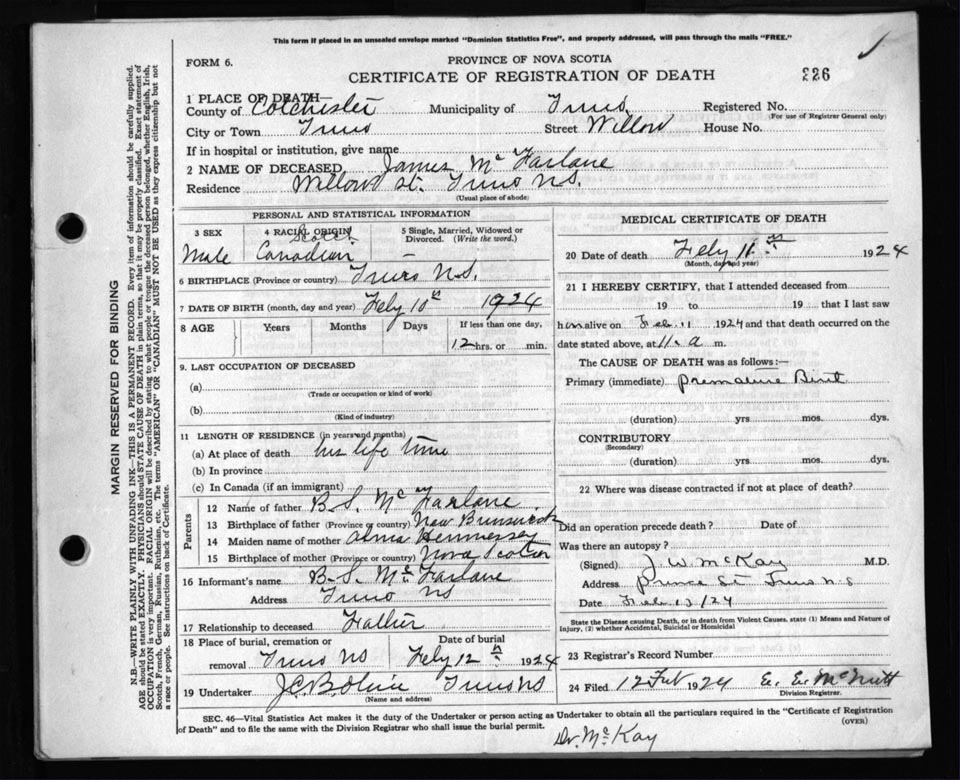 This form if placed in an unsealed envelope marked "Dominion Statistics Free", and properly addressed, will pass through the mails "FREE."
FORM 6.
PROVINCE OF NOVA SCOTIA
CERTIFICATE OF REGISTRATION OF DEATH
226
1 PLACE OF DEATH—
County of Colchester Municipality of Truro Registered No.
(For use of Registrar General only)
City or Town Truro Street Willow House No.
If in hospital or institution, give name
2 NAME OF DECEASED James McFarlane
Residence Willow St. Truro N.S.
(Usual place of abode)
PERSONAL AND STATISTICAL INFORMATION
3 SEX 4 RACIAL ORIGIN 5 Single, Married, Widowed or Divorced. (Write the word.)
Scotch
Male Canadian –
6 BIRTHPLACE (Province or country) Truro N.S.
7 DATE OF BIRTH (month, day and year) Feby 10th 1924
8 AGE Years Months Days If less than one day,
12 hrs. or min.
9. LAST OCCUPATION OF DECEASED
(a)
(Trade or occupation or kind of work)
(b)
(Kind of industry)
11 LENGTH OF RESIDENCE (in years and months)
(a) At place of death his life time
(b) In province
(c) In Canada (if an immigrant)
Parents
12 Name of father B. S. McFarlane
13 Birthplace of father (Province or country) New Brunswick
14 Maiden name of mother Alma Hennessey
15 Birthplace of mother (Province or country) Nova Scotia
16 Informant's name B. S. McFarlane
Address Truro NS
17 Relationship to deceased Father
18 Place of burial, cremation or removal Truro NS
Date of burial
Feby 12th 1924
19 Undertaker J.C. Truro NS
(Name and address)
MEDICAL CERTIFICATE OF DEATH
20 Date of death Feby 11th 1924
(Month, day and year)
21 I HEREBY CERTIFY, that I attended deceased from
19 to 19 that I last saw
him alive on Feb 11 1924 and that death occurred on the
date stated above, at 11. a m.
The CAUSE OF DEATH was as follows:—
Primary (immediate) Premature Birth
(duration) yrs mos. dys.
CONTRIBUTORY
(Secondary)
(duration) yrs. mos. dys.
22 Where was disease contracted if not at place of death?
Did an operation precede death? Date of
Was there an autopsy?
(Signed) J. W. McKay M.D.
Address Prince St Truro N.S
Date Feb 13/24
State the Disease causing Death, or in death from Violent Causes, state (1) Means and Nature of Injury, (2) whether Accidental, Suicidal or Homicidal
23 Registrar's Record Number
24 Filed 12 Feb 1924 E. E. McNutt
Division Registrar.
SEC. 46—Vital Statistics Act makes it the duty of the Undertaker or person acting as Undertaker to obtain all the particulars required in the "Certificate of Registration
of Death" and to file the same with the Division Registrar who shall issue the burial permit.
(OVER)
Dr. McKay
MARGIN RESERVED FOR BINDING
N.B.—WRITE PLAINLY WITH UNFADING INK—THIS IS A PERMANENT RECORD. Every item of information should be carefully supplied.
AGE should be stated EXACTLY. PHYSICIANS should STATE CAUSE OF DEATH in plain terms, so that it may be properly classified. Exact statement of
OCCUPATION is very important. RACIAL ORIGIN will be described by stating to what people or tongue the deceased person belonged, whether English, Irish,
Scotch, French, German, Russian, Ruthenian, etc. The terms "AMERICAN" or "CANADIAN" MUST NOT BE USED as they express citizenship but not
a race or people. See instructions on back of Certificate.